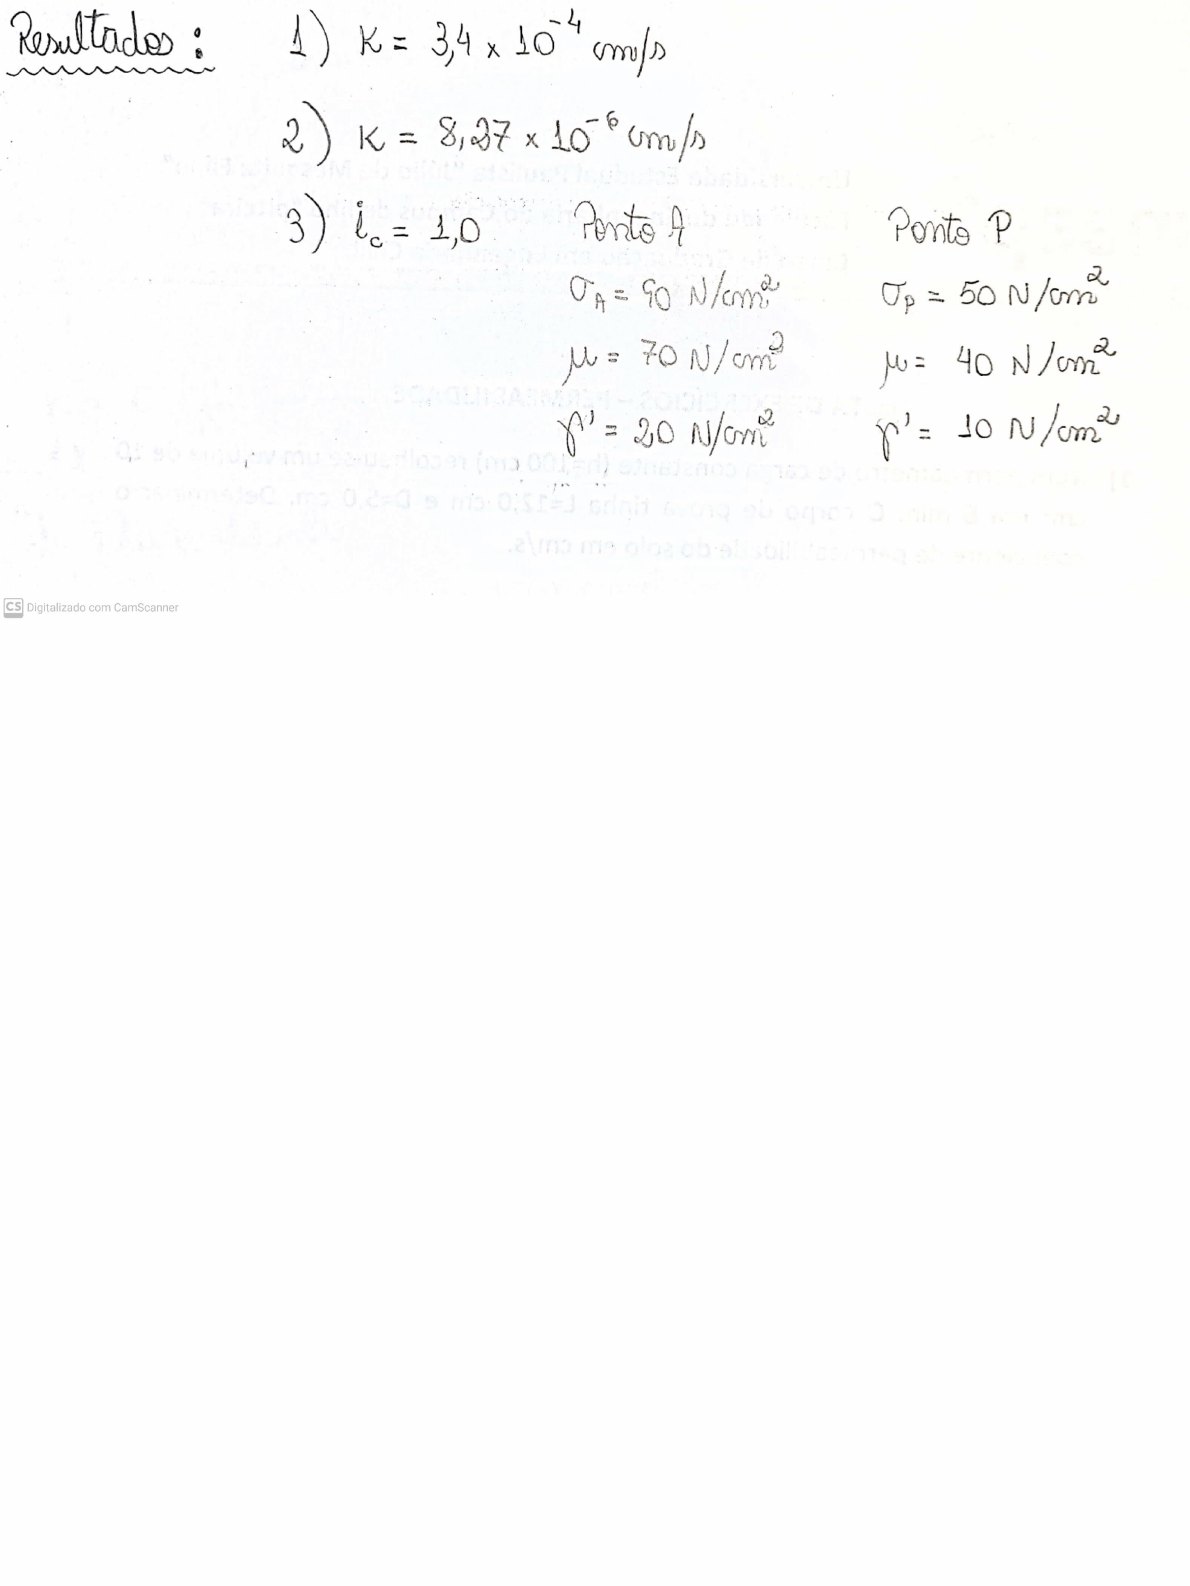 Resultados: 1) K = 3,4 x 10⁻⁴ cm/s
2) K = 8,27 x 10⁻⁶ cm/s
3) i_c = 1,0 Ponto A Ponto P
σ_A = 90 N/cm² σ_P = 50 N/cm²
μ = 70 N/cm² μ = 40 N/cm²
γ' = 20 N/cm² γ' = 10 N/cm²
CS Digitalizado com CamScanner